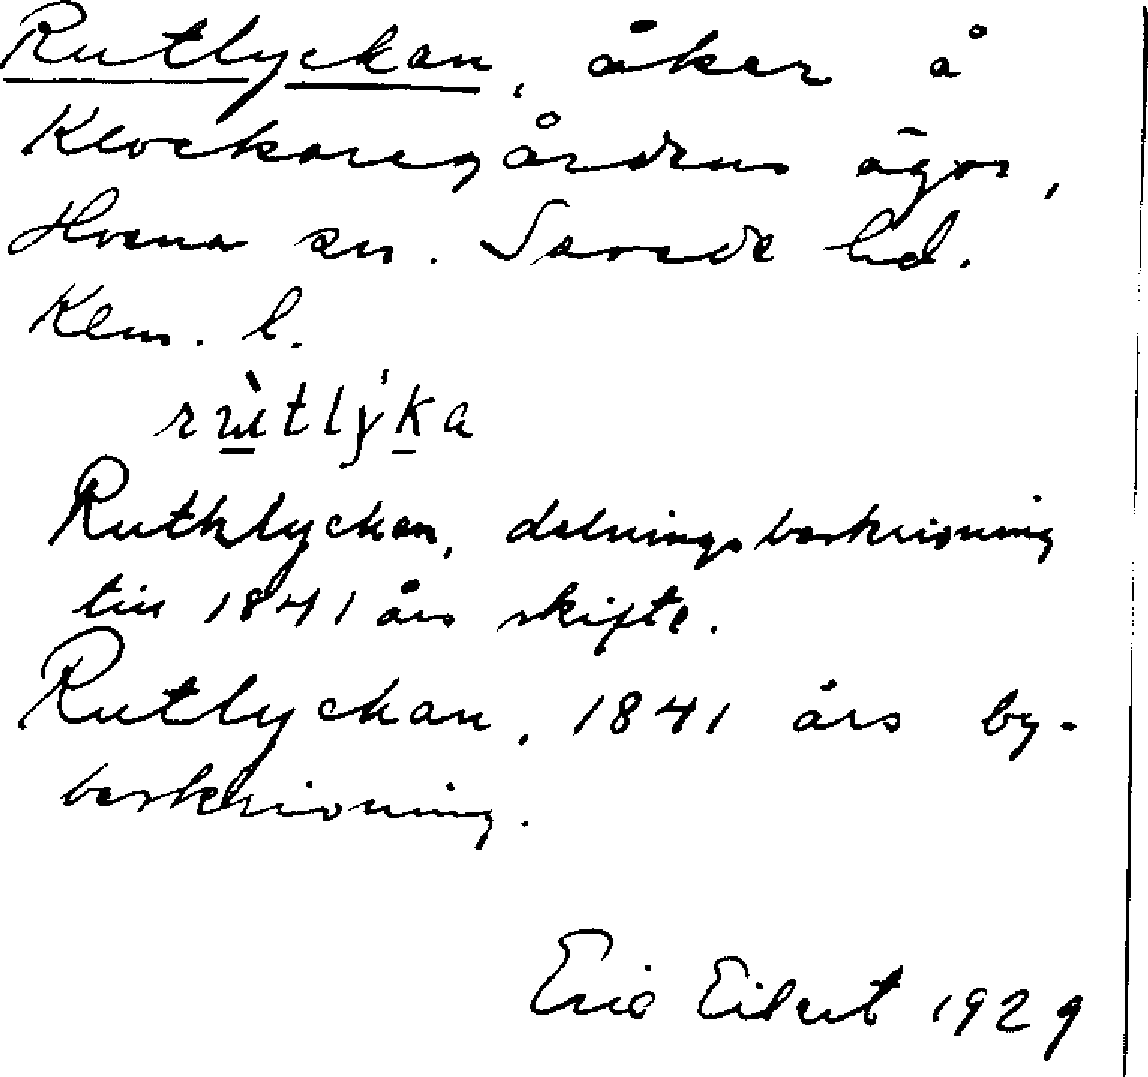 Rutlyckan, åker å
Klockaregårdens ägor,
Hvena sn. Sevede hd.
Klm. l.
rùtlýka
Ruthlyckan, delningsbeskrivning
till 1841 års skifte.
Rutlyckan, 1841 års by-
beskrivning.
Eric Eilert 1929